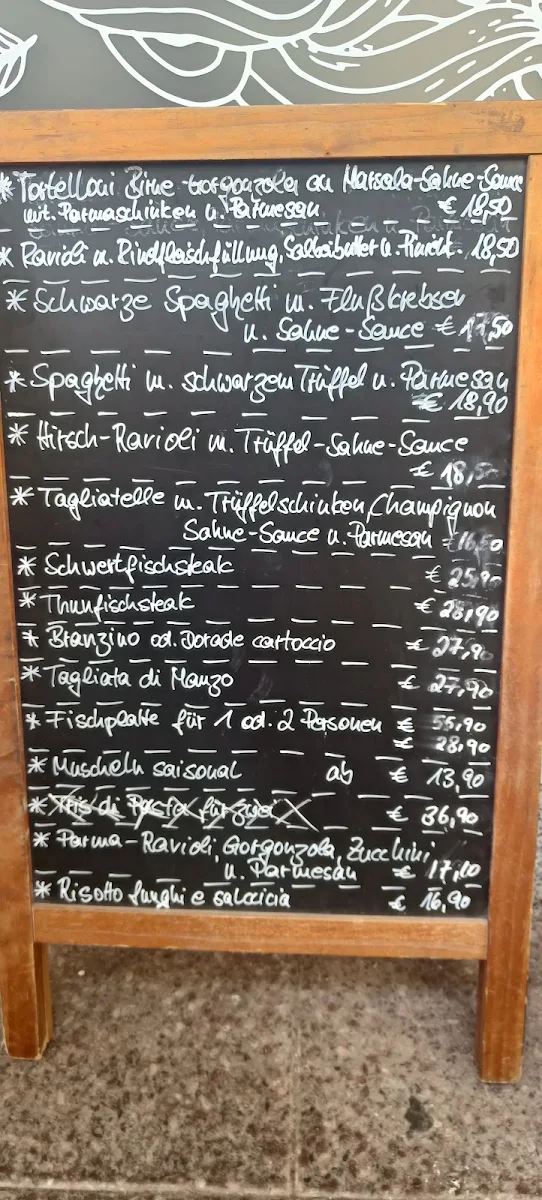 * Tortelloni Birne Gorgonzola an Marsala-Sahne-Sauce
mit Parmaschinken u. Parmesan € 18,50
* Ravioli m. Rindfleischfüllung, Salbeibutter u. 18,50
* Schwarze Spaghetti m. Flußkrebsen
u. Sahne-Sauce € 17,50
* Spaghetti m. schwarzem Trüffel u. Parmesan
€ 18,90
* Hirsch-Ravioli m. Trüffel-Sahne-Sauce
€ 18,50
* Tagliatelle m. Trüffelschinken, Champignon
Sahne-Sauce u. Parmesan 16,50
* Schwertfischsteak € 25,90
* Thunfischsteak €
* Branzino od. Dorade cartoccio € 27,90
* Tagliata di Manzo € 27,90
* Fischplatte für 1 od. 2 Personen € 55,90
€ 28,90
* Muscheln saisonal ab € 13,90
* Tris di Pasta für zwei € 36,90
* Parma-Ravioli, Gorgonzola, Zucchini
u. Parmesan € 17,10
* Risotto funghi e salcicia € 16,90